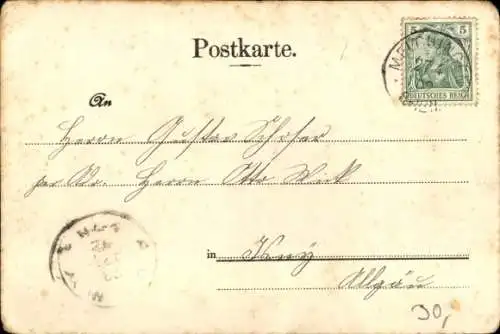 Postkarte.
5 5
DEUTSCHES REICH
An
Herrn Gustav Schofer
per Adr. Herrn Otto
in
Allgäu
30,